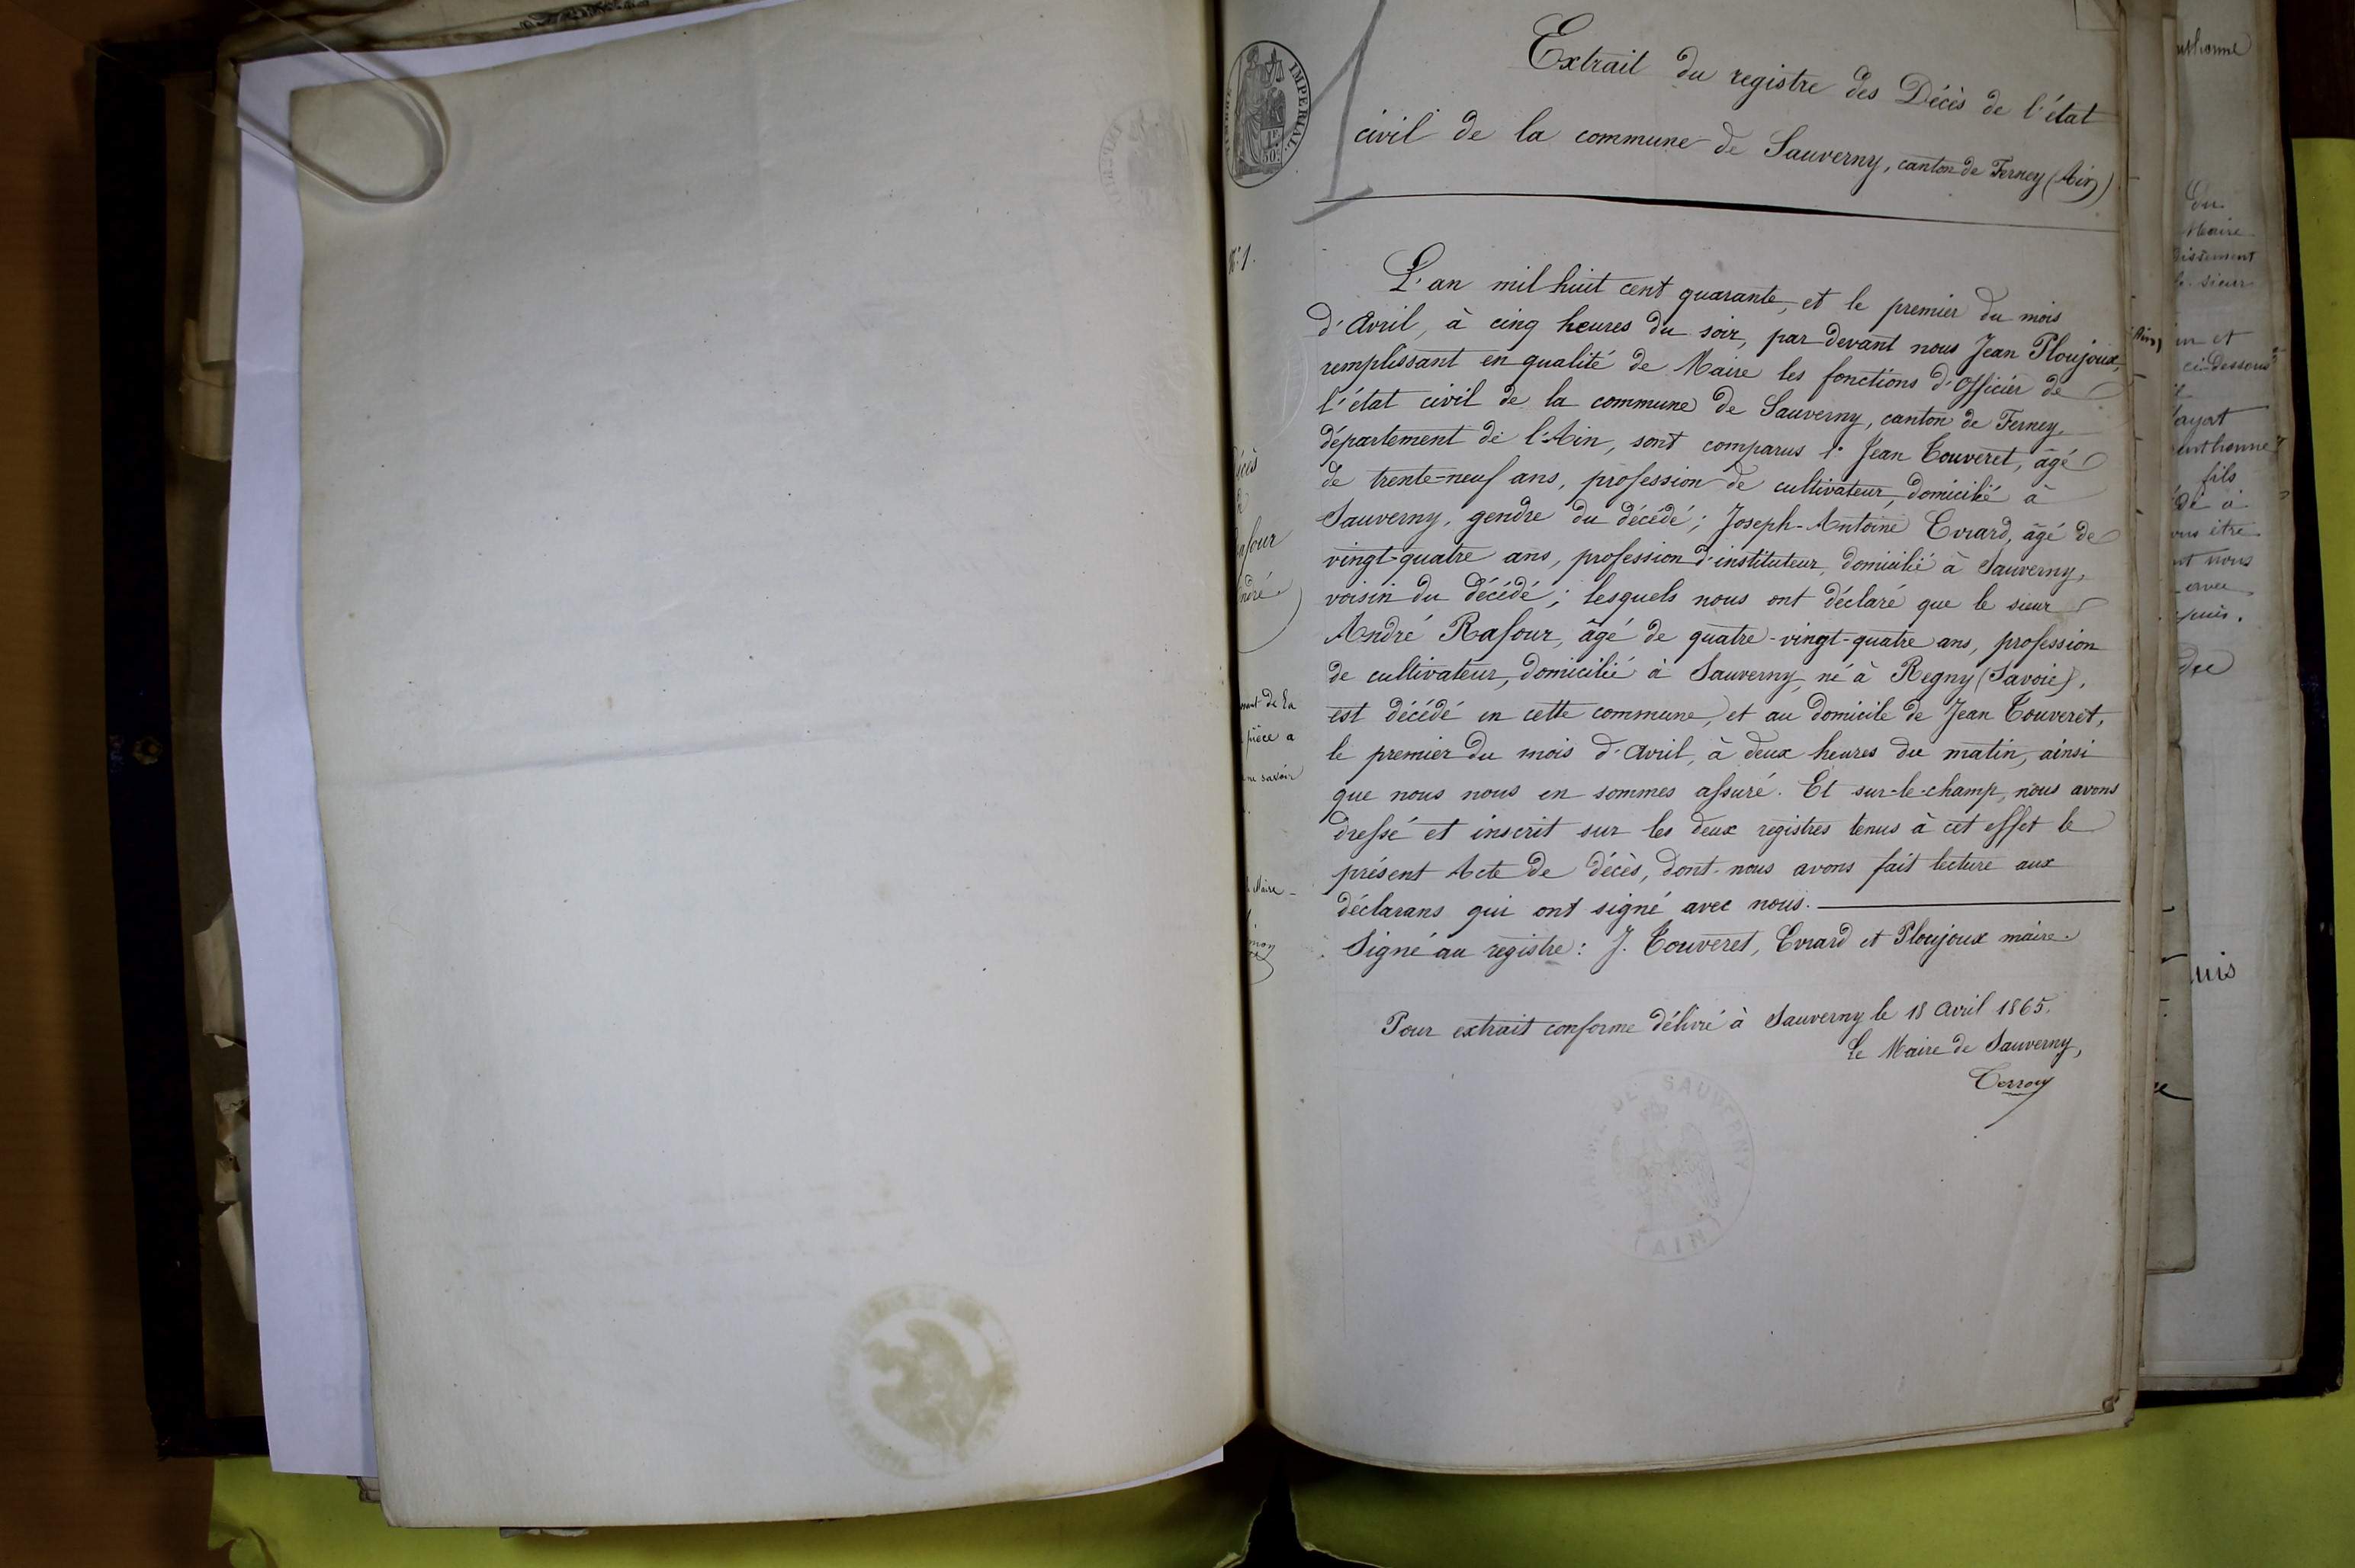 Extrait du registre des Décès de l'état
civil de la commune de Sauverny, canton de Ferney (Ain)
IMPERIAL.
1F
50c
N° 1.
L'an mil huit cent quarante, et le premier du mois
d'Avril, à cinq heures du soir, par devant nous Jean Ploujoux,
remplissant en qualité de Maire les fonctions d'Officier de
l'état civil de la commune de Sauverny, canton de Ferney,
département de l'Ain, sont comparus 1° Jean Touveret, âgé
de trente-neuf ans, profession de cultivateur, domicilié à
Sauverny, gendre du décédé; Joseph-Antoine Evrard, âgé de
vingt-quatre ans, profession d'instituteur, domicilié à Sauverny,
voisin du décédé; lesquels nous ont déclaré que le sieur
André Rafour, âgé de quatre-vingt-quatre ans, profession
de cultivateur, domicilié à Sauverny, né à Regny (Savoie),
est décédé en cette commune, et au domicile de Jean Touveret,
le premier du mois d'Avril, à deux heures du matin, ainsi
que nous nous en sommes assuré. Et sur-le-champ, nous avons
dressé et inscrit sur les deux registres tenus à cet effet le
présent Acte de décès, dont nous avons fait lecture aux
déclarans qui ont signé avec nous.
Signé au registre: J. Touveret, Evrard et Ploujoux maire.
Pour extrait conforme délivré à Sauverny le 18 Avril 1865.
Le Maire de Sauverny,
DE SAUVERNY
(AIN)